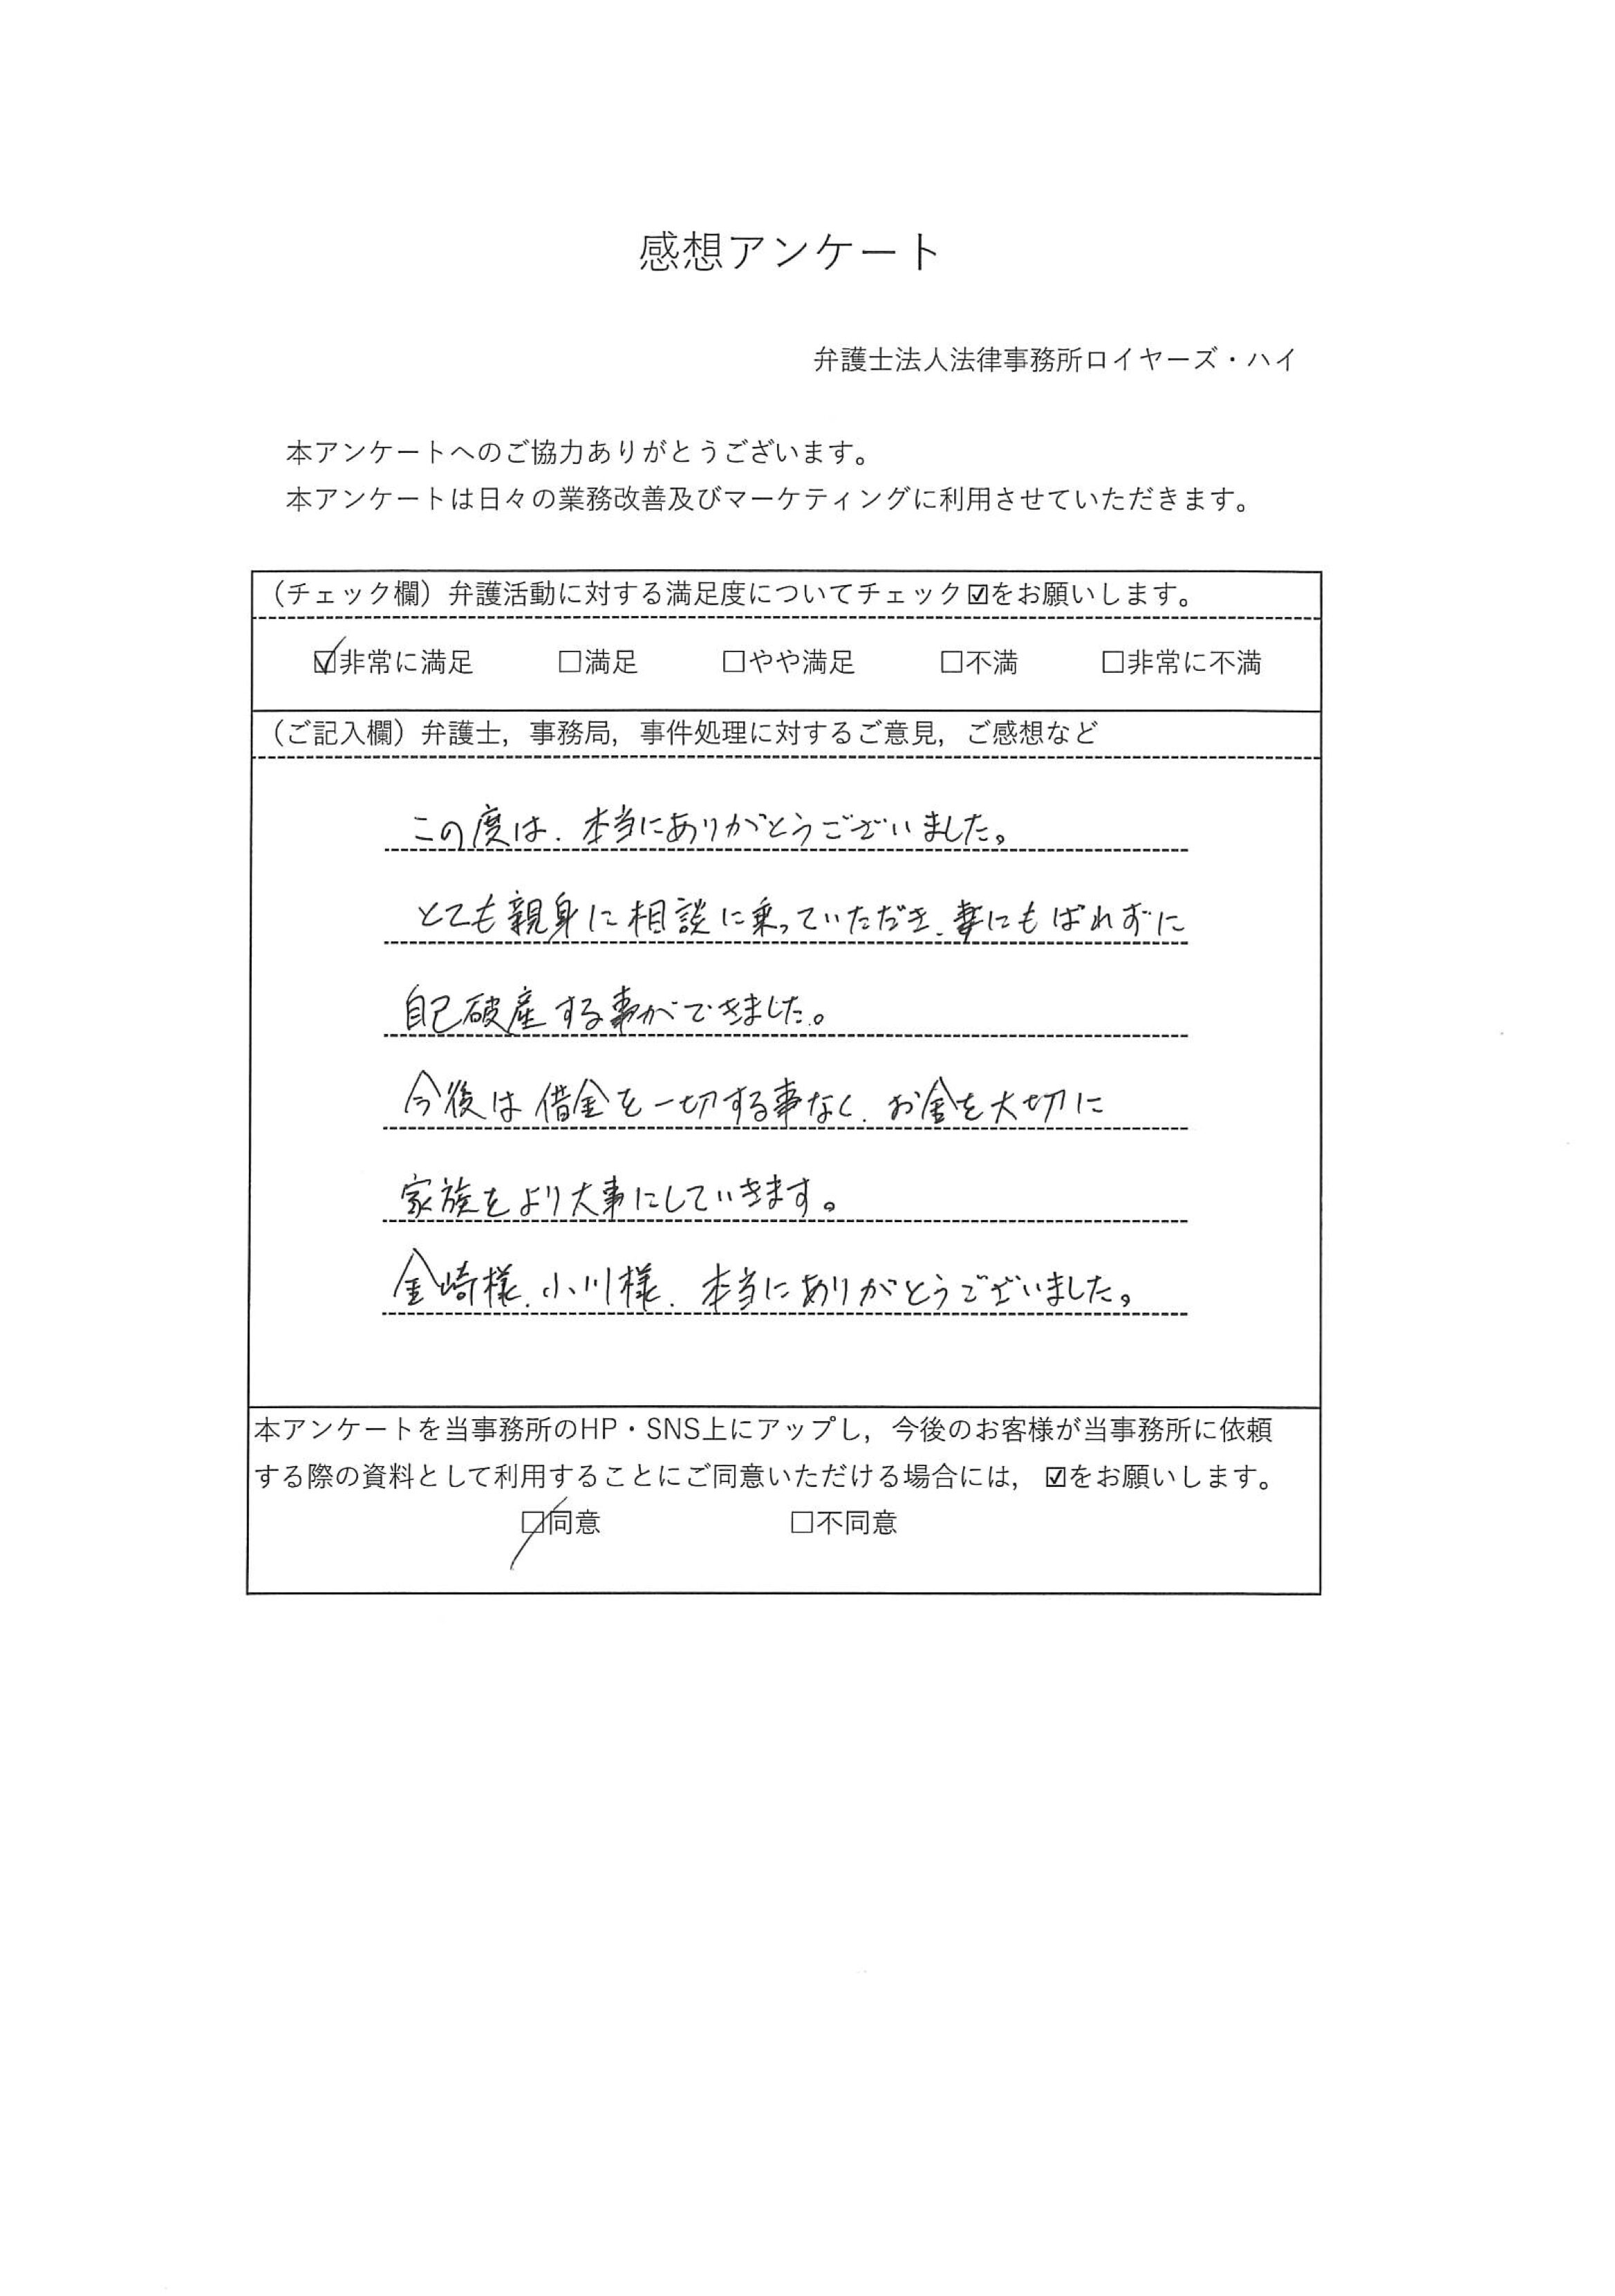 感想アンケート
弁護士法人法律事務所ロイヤーズ・ハイ
本アンケートへのご協力ありがとうございます。
本アンケートは日々の業務改善及びマーケティングに利用させていただきます。
（チェック欄）弁護活動に対する満足度についてチェック☑をお願いします。
☑非常に満足 □満足 □やや満足 □不満 □非常に不満
（ご記入欄）弁護士，事務局，事件処理に対するご意見，ご感想など
この度は、本当にありがとうございました。
とても親身に相談に乗っていただき、妻にもばれずに
自己破産する事ができました。
今後は借金を一切する事なく、お金を大切に
家族をより大事にしていきます。
金崎様、小川様、本当にありがとうございました。
本アンケートを当事務所のHP・SNS上にアップし，今後のお客様が当事務所に依頼
する際の資料として利用することにご同意いただける場合には，☑をお願いします。
☑同意 □不同意